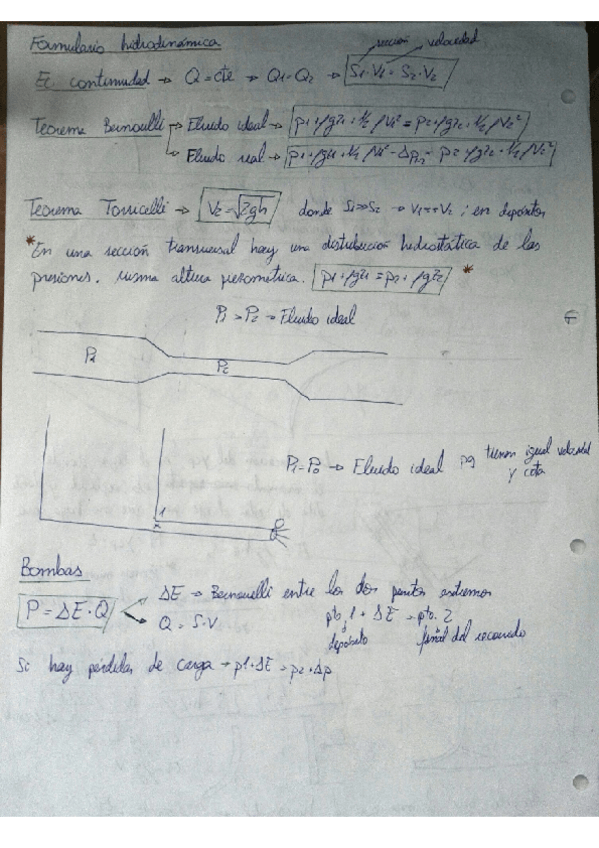 Formulario hidrodinámica
sección velocidad
Ec. continuidad → Q = cte → Q1 = Q2 → S1·V1 = S2·V2
Teorema Bernoulli → Fluido ideal → p1+ρgz1+1/2ρV1² = p2+ρgz2+1/2ρV2²
Fluido real → p1+ρgz1+1/2ρV1² - Δp12 = p2+ρgz2+1/2ρV2²
Teorema Torricelli → V2=√2gh donde S1>>S2 → V1<<V2; en depósitos
*En una sección transversal hay una distribución hidrostática de las
presiones. misma altura piezométrica. p1+ρgz1 = p2+ρgz2 *
P1 > P2 → Fluido ideal
P1
P2
P1=P0 → Fluido ideal pq tienen igual velocidad
y cota
1
0
Bombas
P = ΔE·Q
ΔE → Bernouelli entre los dos puntos extremos
Q = S·V
pto. 1 + ΔE = pto. 2
depósito final del recorrido
Si hay pérdidas de carga → p1+ΔE = p2+Δp